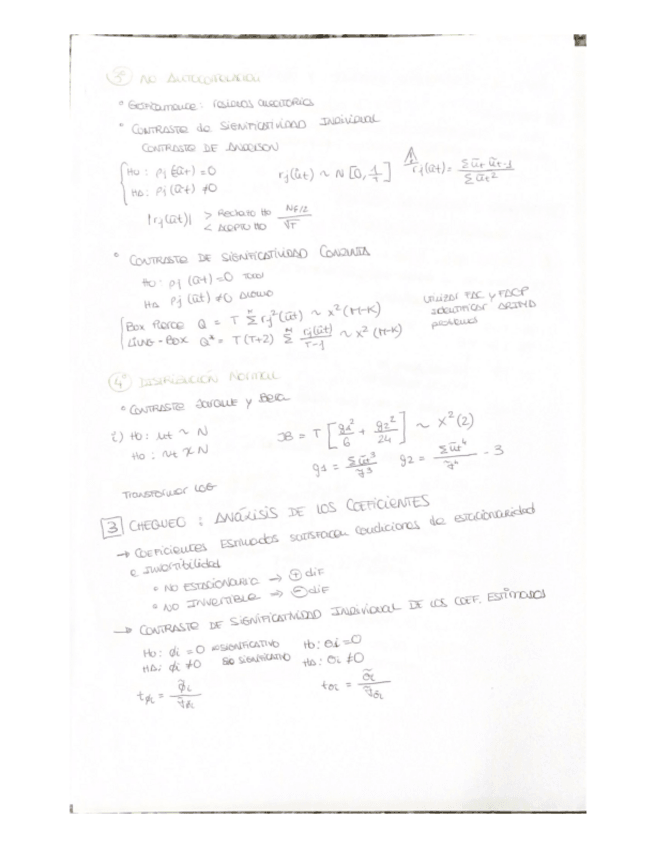 3º NO AUTOCORRELACIÓN
° GRÁFICAMENTE: residuos aleatorios
° CONTRASTE de SIGNIFICATIVIDAD INDIVIDUAL
CONTRASTE DE ANDERSON
H0: ρj(ũt) = 0
HA: ρj(ũt) ≠ 0
rj(ũt) ~ N[0, 1/T]
⚠ rj(ũt) = Σũt ũt-1 / Σũt²
|rj(ũt)| > Rechazo H0 < ACEPTO H0 Nε/2 / √T
° CONTRASTE DE SIGNIFICATIVIDAD CONJUNTA
H0: ρj(ũt) = 0 TODO
HA ρj(ũt) ≠ 0 ALGUNO
Box Pierce Q = T Σ rj²(ũt) ~ χ²(M-K)
LJUNG-BOX Q* = T(T+2) Σ rj(ũt) / T-1 ~ χ²(M-K)
UTILIZAR FAC y FACP
identificar ARIMA
problemas
4º DISTRIBUCIÓN NORMAL
° CONTRASTE JARQUE y BERA
i) H0: ut ~ N
H0: ut ≁ N
JB = T [g1²/6 + g2²/24] ~ χ²(2)
g1 = Σũt³ / σ̃³ g2 = Σũt⁴ / σ̃⁴ - 3
TRANSFORMAR LOG
3 CHEQUEO: ANÁLISIS DE LOS COEFICIENTES
→ COEFICIENTES ESTIMADOS SATISFACEN condiciones de estacionariedad
e invertibilidad
° NO ESTACIONARIO → ⊕ dif
° NO INVERTIBLE → ⊖ dif
→ CONTRASTE DE SIGNIFICATIVIDAD INDIVIDUAL DE LOS COEF. ESTIMADOS
H0: ϕi = 0 SIGNIFICATIVO H0: θi = 0
HA: ϕi ≠ 0 SIGNIFICATIVO HA: θi ≠ 0
tϕi = ϕ̃i / σ̃ϕi tθi = θ̃i / σ̃θi